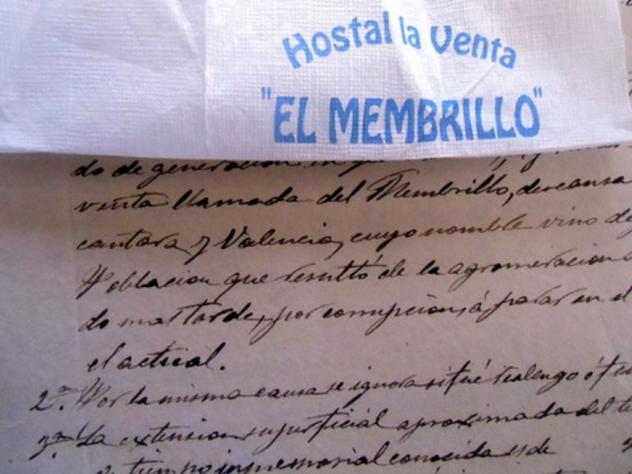 Hostal la Venta
"EL MEMBRILLO"
do de generacion en
venta llamada del Membrillo, descansa
cantara y Valencia, cuyo nombre vino
Poblacion que resultó de la agromeracion
do mas tarde, por corrupcion, á parar en el
el actual.
2ª. Por la misma causa se ignora si fué realengo ó
3ª. La extension superficial aproximada del
tiempo inmemorial conocida es de